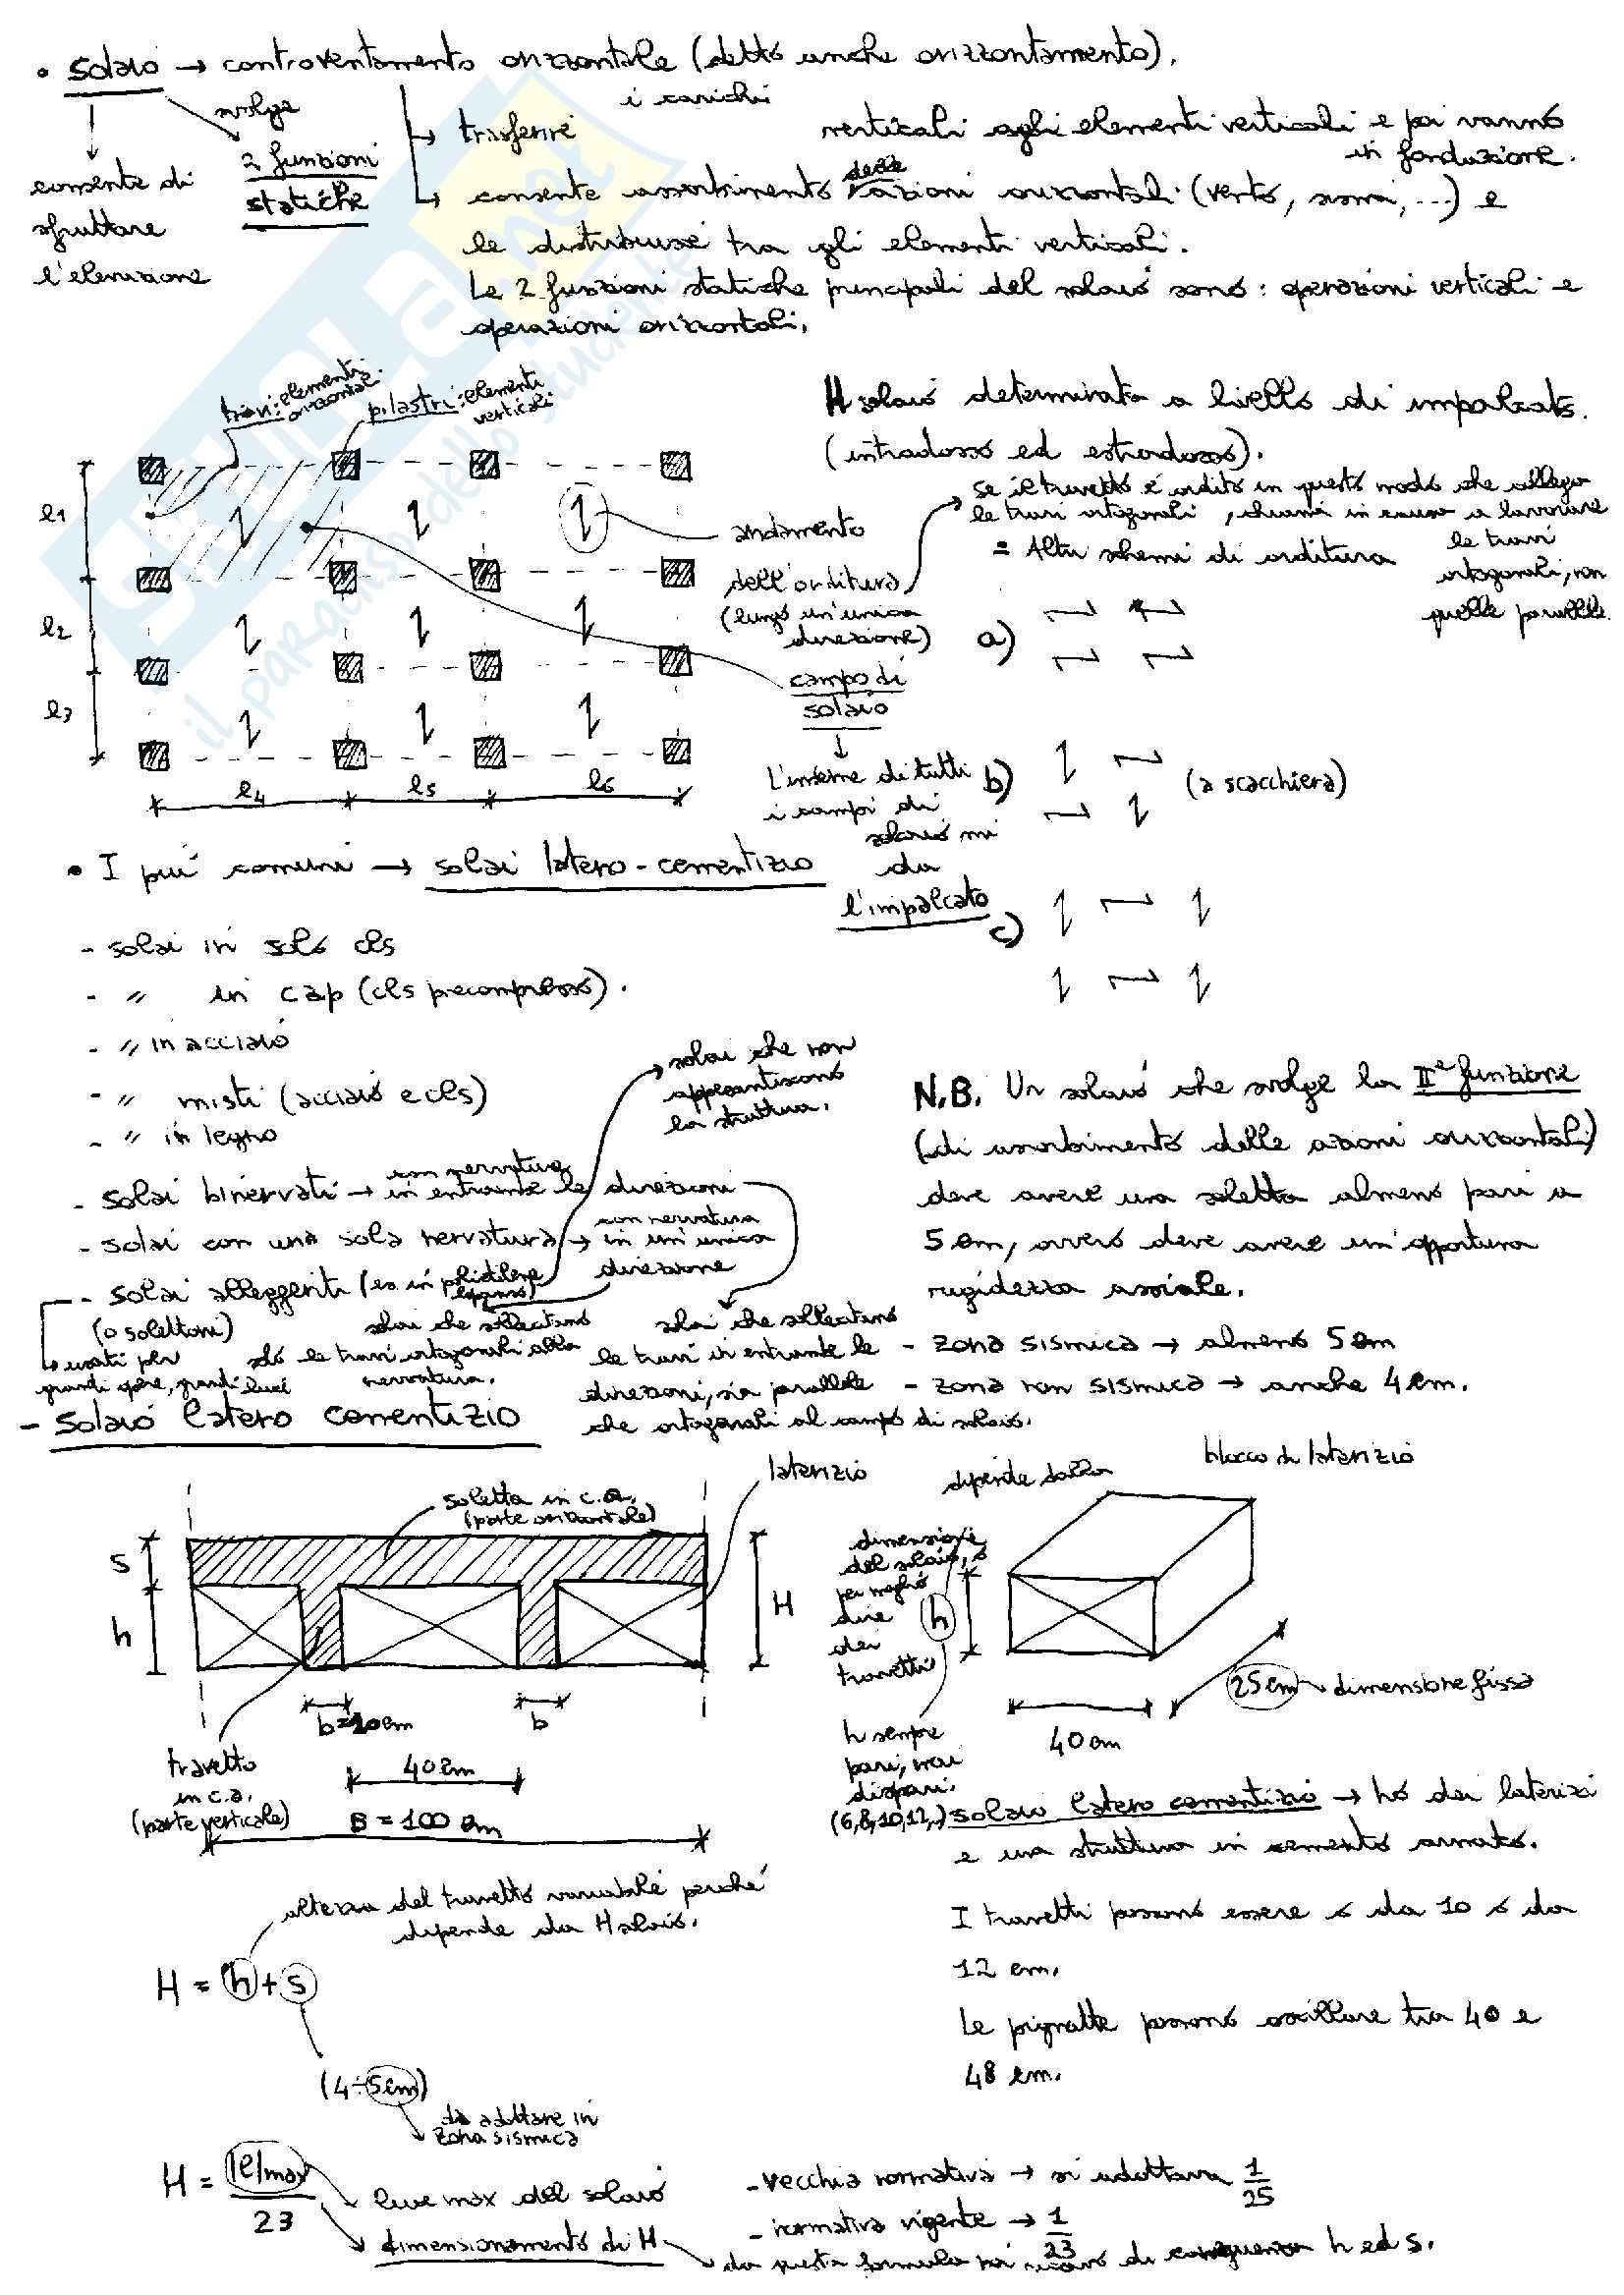 • Solaio → controventamento orizzontale (detto anche orizzontamento).
svolge
2 funzioni
statiche
consente di
sfruttare
l'elevazione
i carichi
↳ trasferire verticali agli elementi verticali e poi vanno
in fondazione.
↳ consente assorbimento delle azioni orizzontali (vento, sisma, ...) e
le distribuisce tra gli elementi verticali.
Le 2 funzioni statiche principali del solaio sono: operazioni verticali e
operazioni orizzontali.
travi: elementi
orizzontali
pilastri: elementi
verticali
l1
l2
l3
l4 l5 l6
andamento
dell'orditura
(lungo un'unica
direzione)
campo di
solaio
↓
L'insieme di tutti
i campi di
solaio mi
da
l'impalcato
H solaio determinata a livello di impalcato.
(intradosso ed estradosso).
se il travetto è ordito in questo modo che collega
le travi ortogonali, chiama in causa a lavorare
le travi
ortogonali, non
quelle parallele.
= Altri schemi di orditura
a)
b) (a scacchiera)
c)
• I più comuni → solai latero-cementizio
- solai in solo cls
- " in cap (cls precompresso).
- " in acciaio
- " misti (acciaio e cls)
- " in legno
- solai binervati → con nervatura
in entrambe le direzioni
- solai con una sola nervatura → con nervatura
in un'unica
direzione
- solai alleggeriti (es in polistirene
espanso)
(o solettoni)
↳ usati per
grandi opere, grandi luci
solai che non
appesantiscono
la struttura.
solai che sollecitano
solo le travi ortogonali alla
nervatura.
solai che sollecitano
le travi in entrambe le
direzioni, sia parallele
che ortogonali al campo di solaio.
N.B. Un solaio che svolge la IIª funzione
(di assorbimento delle azioni orizzontali)
deve avere una soletta almeno pari a
5 cm, ovvero deve avere un'opportuna
rigidezza assiale.
- zona sismica → almeno 5 cm
- zona non sismica → anche 4 cm.
- Solaio latero cementizio
soletta in c.a.
(parte orizzontale)
laterizio
s
h
H
b=10cm b
40cm
B=100 cm
travetto
in c.a.
(parte verticale)
dipende dalla
dimensione
del solaio, o
per meglio
dire
dei
travetti
h
h sempre
pari, mai
dispari.
(6,8,10,12,..)
blocco di laterizio
25cm dimensione fissa
40 cm
solaio latero cementizio → ho dei laterizi
e una struttura in cemento armato.
I travetti possono essere o da 10 o da
12 cm.
Le pignatte possono oscillare tra 40 e
48 cm.
altezza del travetto variabile perché
dipende da H solaio.
H = h + s
(4÷5cm)
da adottare in
zona sismica
H = |l|max
23
luce max del solaio
dimensionamento di H
- vecchia normativa → si adottava 1/25
- normativa vigente → 1/23
da questa formula poi ricavo di conseguenza h ed s.